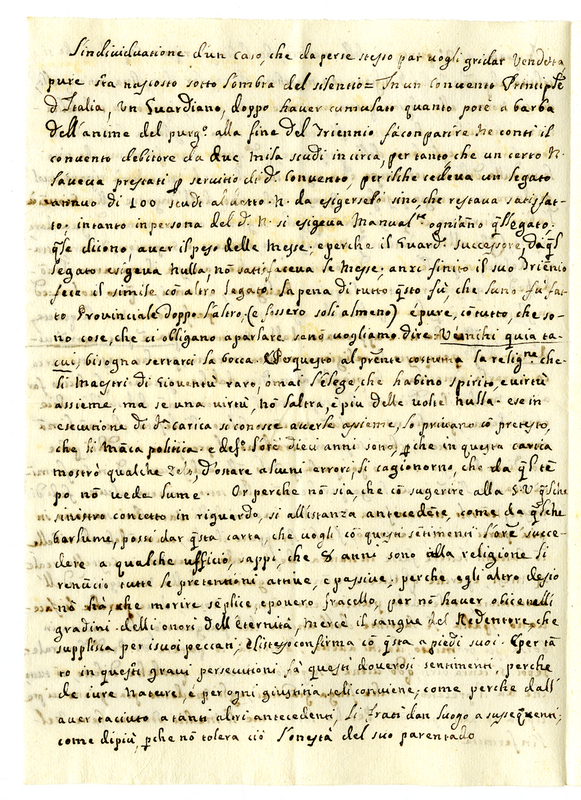 L'individuatione d'un caso, che da per se stesso par vogli gridar vendetta,
pure sta nascosto sotto l'ombra del silentio = In un Convento Principle
d'Italia, un Guardiano, doppo haver cumulato quanto potè a barba
dell'anime del purg.º alla fine del triennio fà comparire ne conti il
convento debitore da due mila scudi in circa, per tanto, che un certo N.
l'aveva prestati p servitio di d.º Convento, per il che cedeva un legato
annuo di 100 scudi al detto .N. da esigerselo sino, che restava satisfat-
to; intanto in persona del d.º N. si esigeva Manual.te ogni año qsto legato.
qsle dicono, aver il peso delle Messe; e perche il Guard.º successore da qsto
legato esigeva nulla, nõ satisfaceva le Messe; anzi finito il suo Triennio
fece il simile cõ altro legato: la pena di tutto qsto fù, che l'uno fù fat-
to Provinciale doppo l'altro, (e fossero soli almeno) e pure, cõ tutto, che so-
no cose, che ci obligano a parlare se nõ vogliamo dire Ve mihi quia ta-
cui, bisogna serrarci la bocca. Per questo al prñte costuma la relig.ne che
li Maestri di Gioventù raro, o mai l'elege, che habino spirito, e virtù
assieme, ma se una virtù, nõ l'altra, e più delle volte nulla. e se in
esecutione di d.ª carica si conosce averle assieme, lo privano cõ pretesto,
che li mãca politica. e de fto l'ore dieci anni sono, p che in questa carica
mostrò qualche zelo, d'ostare alcuni errori, li cagionorno, che da ql tẽ
po nõ veda lume. Or perche nõ sia, che cõ sugerire alla S.V. qlche
sinistro concetto in riguardo, si all'istanza antecedẽte, come da qlche
barlume, possi dar qsta carta, che vogli cõ questi sẽtimenti l'ore succe-
dere a qualche ufficio, sappi, che 8 anni sono alla religione li
renũciò tutte le pretentioni attive, e passive, perche egli altro desio
nõ hà, che morire sẽplice, e povero fracello, per nõ haver obice nelli
gradini delli onori dell'eternità, mercè il sangue del Redentore, che
supplisca per i suoi peccati; e l'istesso confirma cõ qsta a piedi suoi. E per tã
to in questi gravi persecutioni fà questi doverosi sentimenti, perche
de iure Nature, e per ogni giustitia seli conviene; come perche dall'
aver taciuto a tanti altri antecedenti, li frati dan luogo a susseqenti;
come di più, p che nõ tolera ciò l'onestà del suo parentado